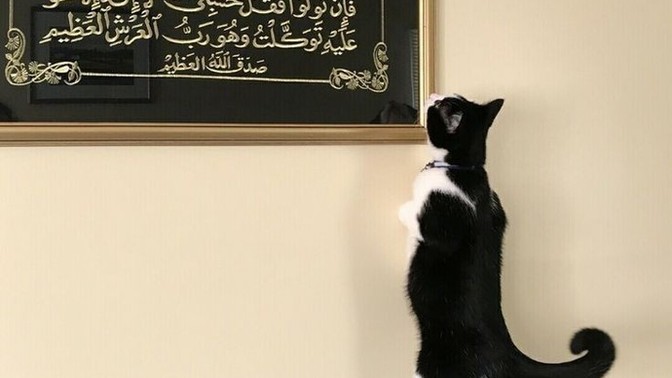 فَإِن تَوَلَّوْا فَقُلْ حَسْبِيَ اللَّهُ لَا إِلَهَ إِلَّا هُوَ
عَلَيْهِ تَوَكَّلْتُ وَهُوَ رَبُّ الْعَرْشِ الْعَظِيمِ
صَدَقَ اللَّهُ الْعَظِيمُ